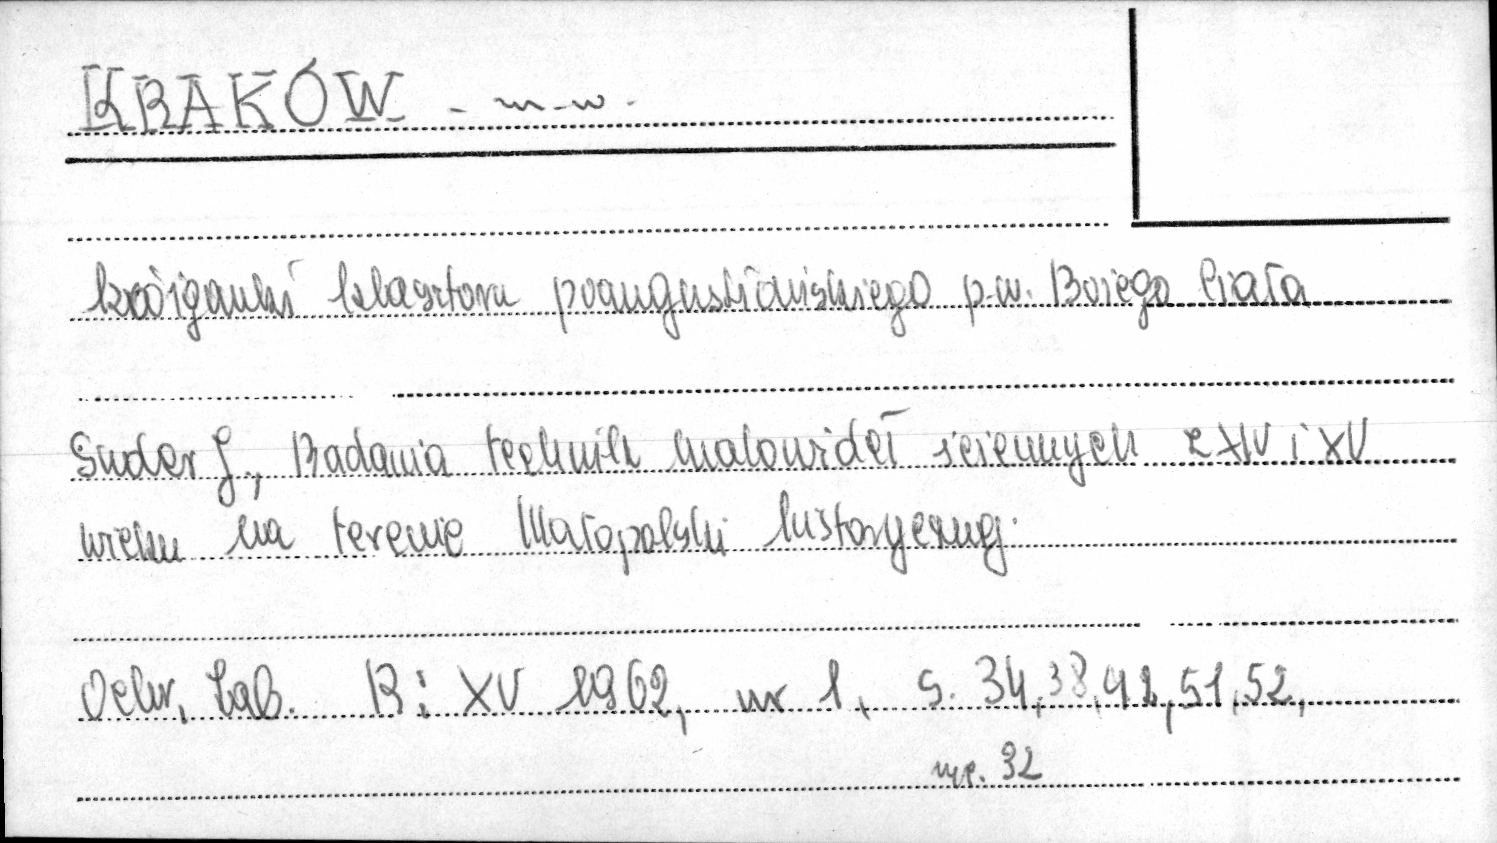 KRAKÓW - m-w.
krużganki klasztoru poaugustiańskiego p.w. Bożego Ciała
Suder J., Badania technik malowideł ściennych z XIV i XV
wieku na terenie Małopolski historycznej.
Ochr. Zab. R: XV 1962, nr 1, s. 34, 38, 42, 51, 52,
ryc. 32